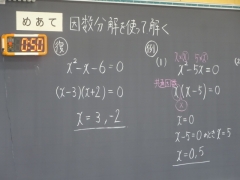 めあて 因数分解を使って解く
0:50
復
x²-x-6=0
(x-3)(x+2)=0
x=3,-2
例
(1) x²-5x=0
共通因数
x(x-5)=0
x=0
x-5=0 のとき x=5
x=0,5